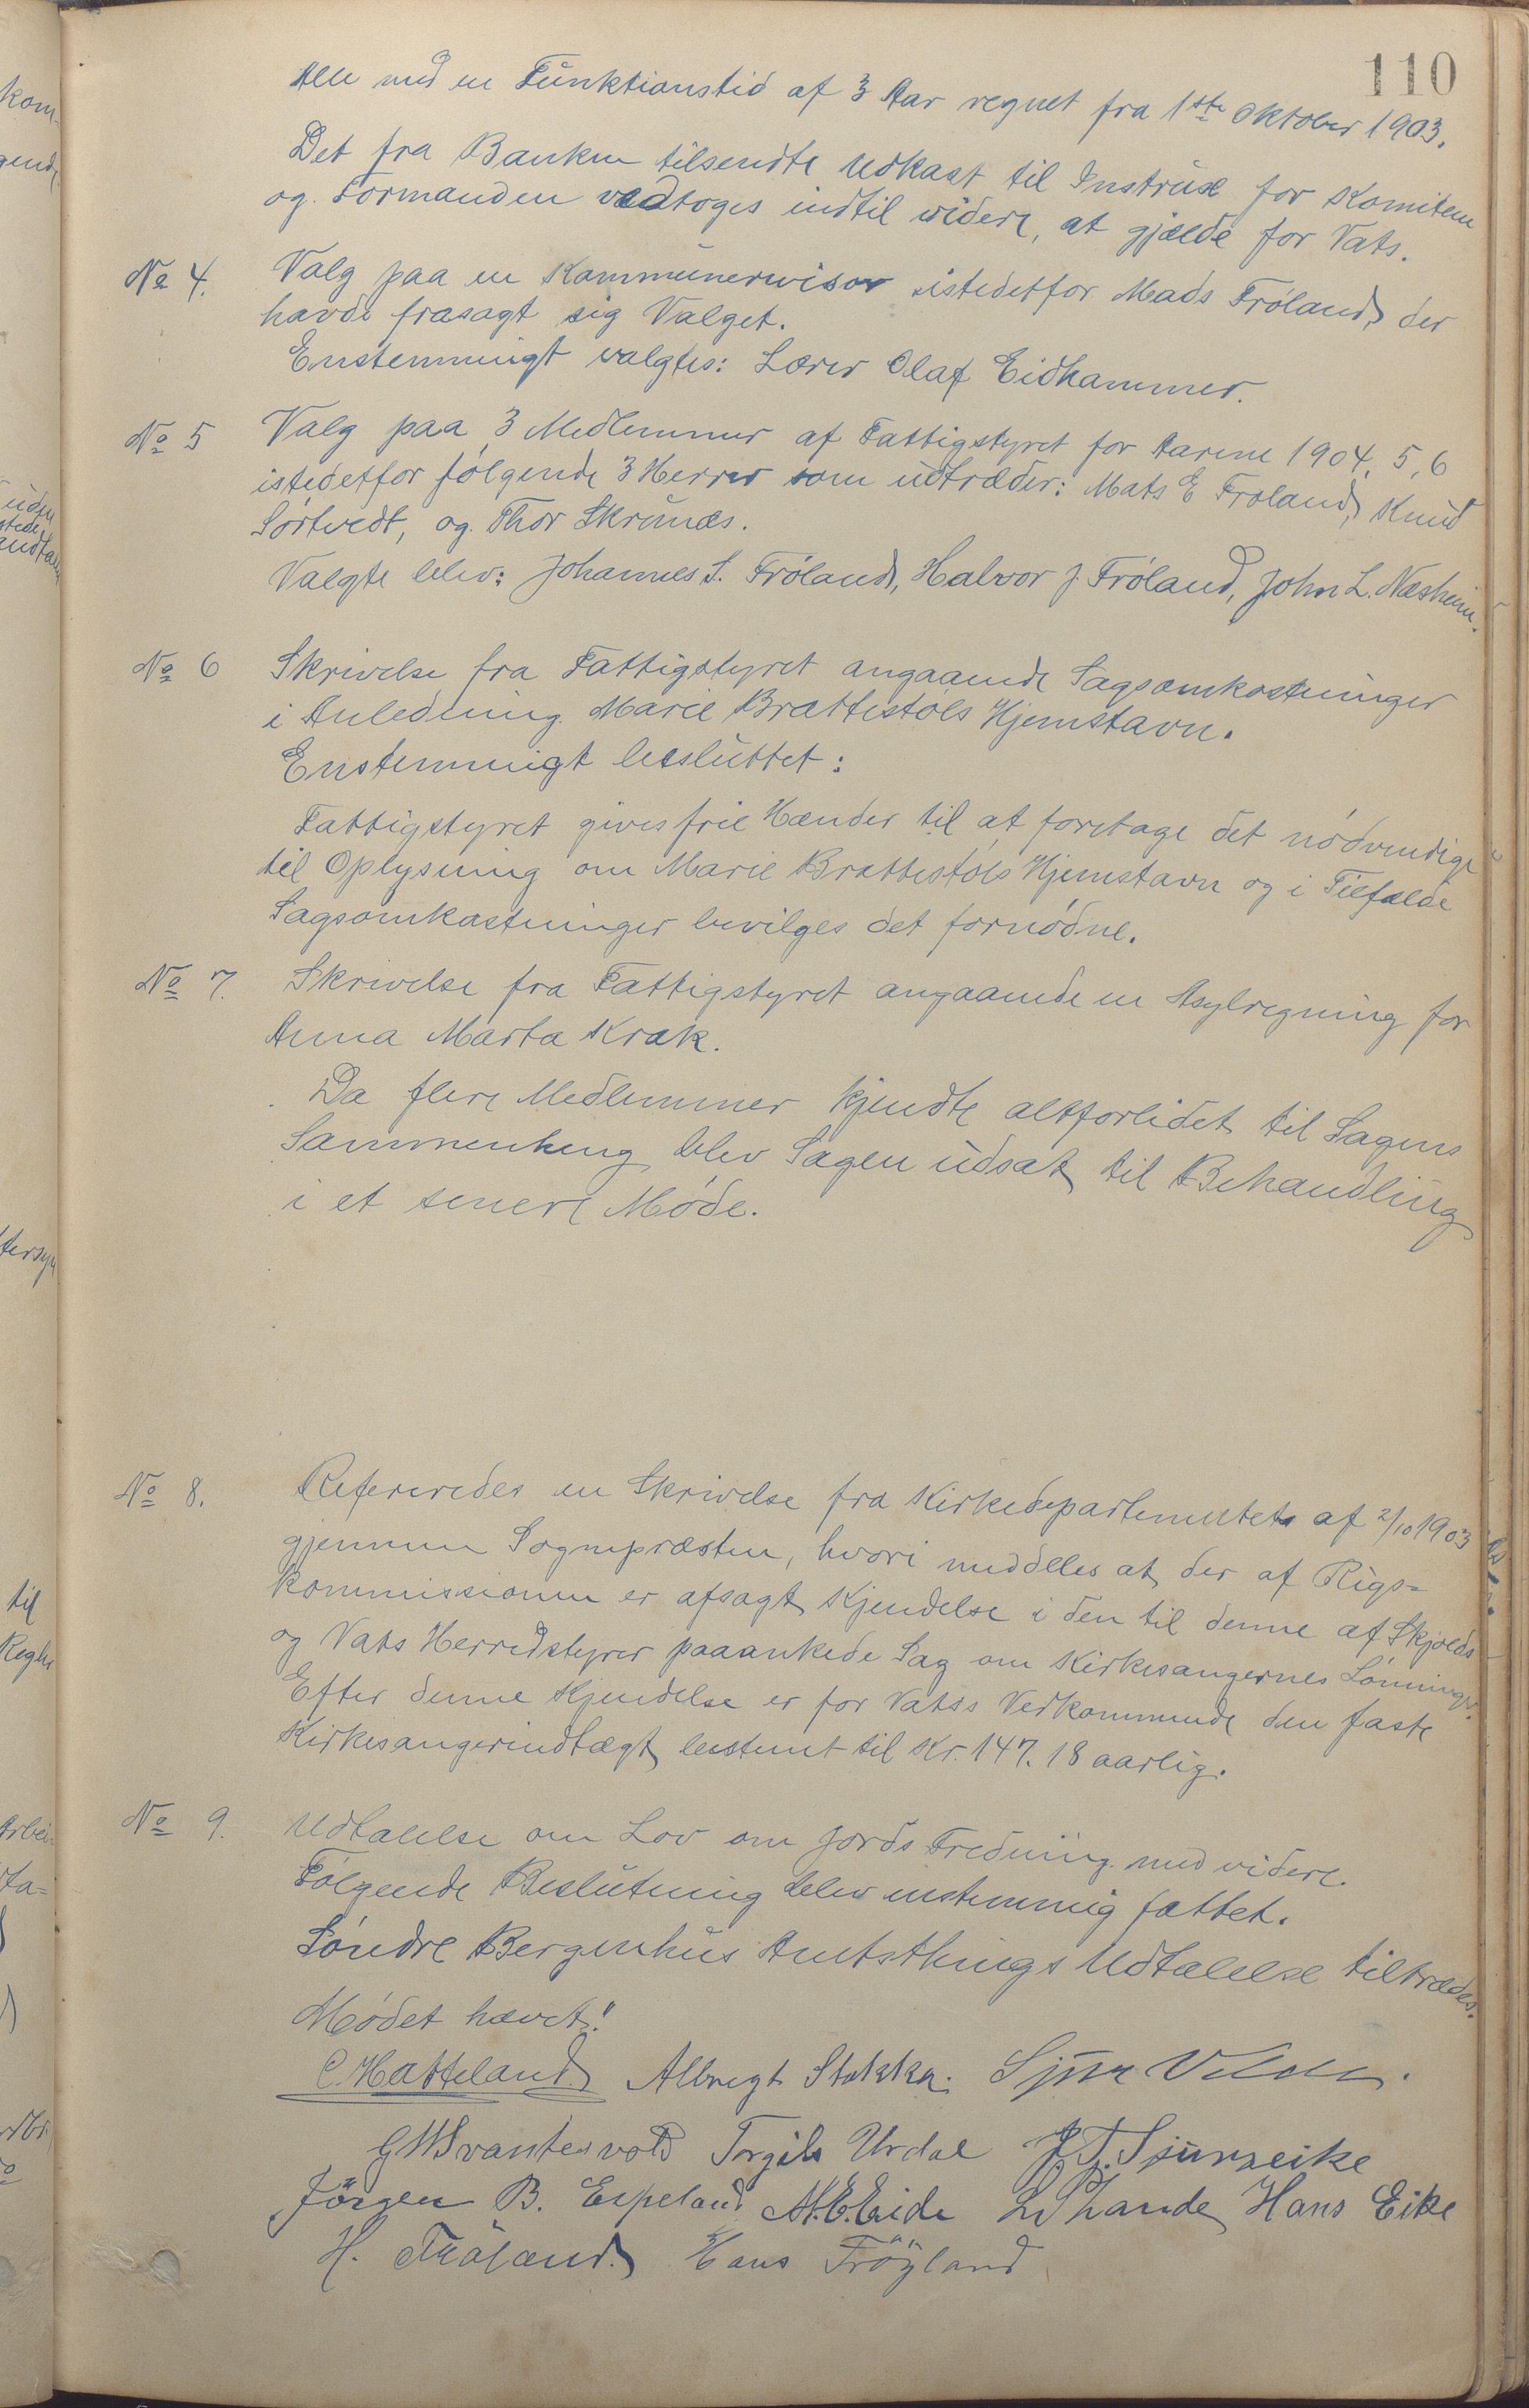 110
Alle med en Funktionstid af 3 Aar regnet fra 1ste Oktober 1903.
Det fra Banken tilsendte Udkast til Instrux for Komiteen
og Formanden vedtoges indtil videre, at gjælde for Vats.
No 4. Valg paa en Kommunerevisor istedetfor Mads Frøland, der
havde frasagt sig Valget.
Enstemmigt valgtes: Lærer Olaf Eidhammer.
No 5 Valg paa 3 Medlemmer af Fattigstyret for Aarene 1904, 5, 6
istedetfor følgende 3 Herrer som udtræder: Mats E Frøland, Knud
Sørtvedt, og Thor Skrunæs.
Valgte blev: Johannes S. Frøland, Halvor J. Frøland, John L. Næsheim.
No 6 Skrivelse fra Fattigstyret angaaende Sagsomkostninger
i Anledning Marie Brattestøls Hjemstavn.
Enstemmigt besluttet:
Fattigstyret gives frie Hænder til at foretage det nødvendige
til Oplysning om Marie Brattestøls Hjemstavn og i Tilfælde
Sagsomkostninger bevilges det fornødne.
No 7. Skrivelse fra Fattigstyret angaaende en Asylregning for
Anna Marta Krak.
Da flere Medlemmer kjendte altforlidet til Sagens
Sammenheng blev Sagen udsat til Behandling
i et senere Møde.
No 8. Refereredes en Skrivelse fra Kirkedepartementet af 2/10 1903
gjennem Sognepræsten, hvori meddeles at der af Rigs=
kommissionen er afsagt Kjendelse i den til denne af Skjolds
og Vats Herredstyrer paaankede Sag om Kirkesangernes Lønninger.
Efter denne Kjendelse er for Vatss Vedkommende den faste
Kirkesangerindtægt bestemt til Kr. 147.18 aarlig.
No 9. Udtalelse om Lov om Jords Fredning med videre.
Følgende Beslutning blev enstemmig fattet.
Søndre Bergenhus Amtsthings Udtalelse tiltrædes.
Mødet hævet!
C. Hatteland Albregt Stakka. Sjur
G W Svantesvold Torgils Urdal J. T. Sjurseike
Jörgen B. Espeland M. E. Eide Hans Eike
H. Frøland. Hans Fröyland